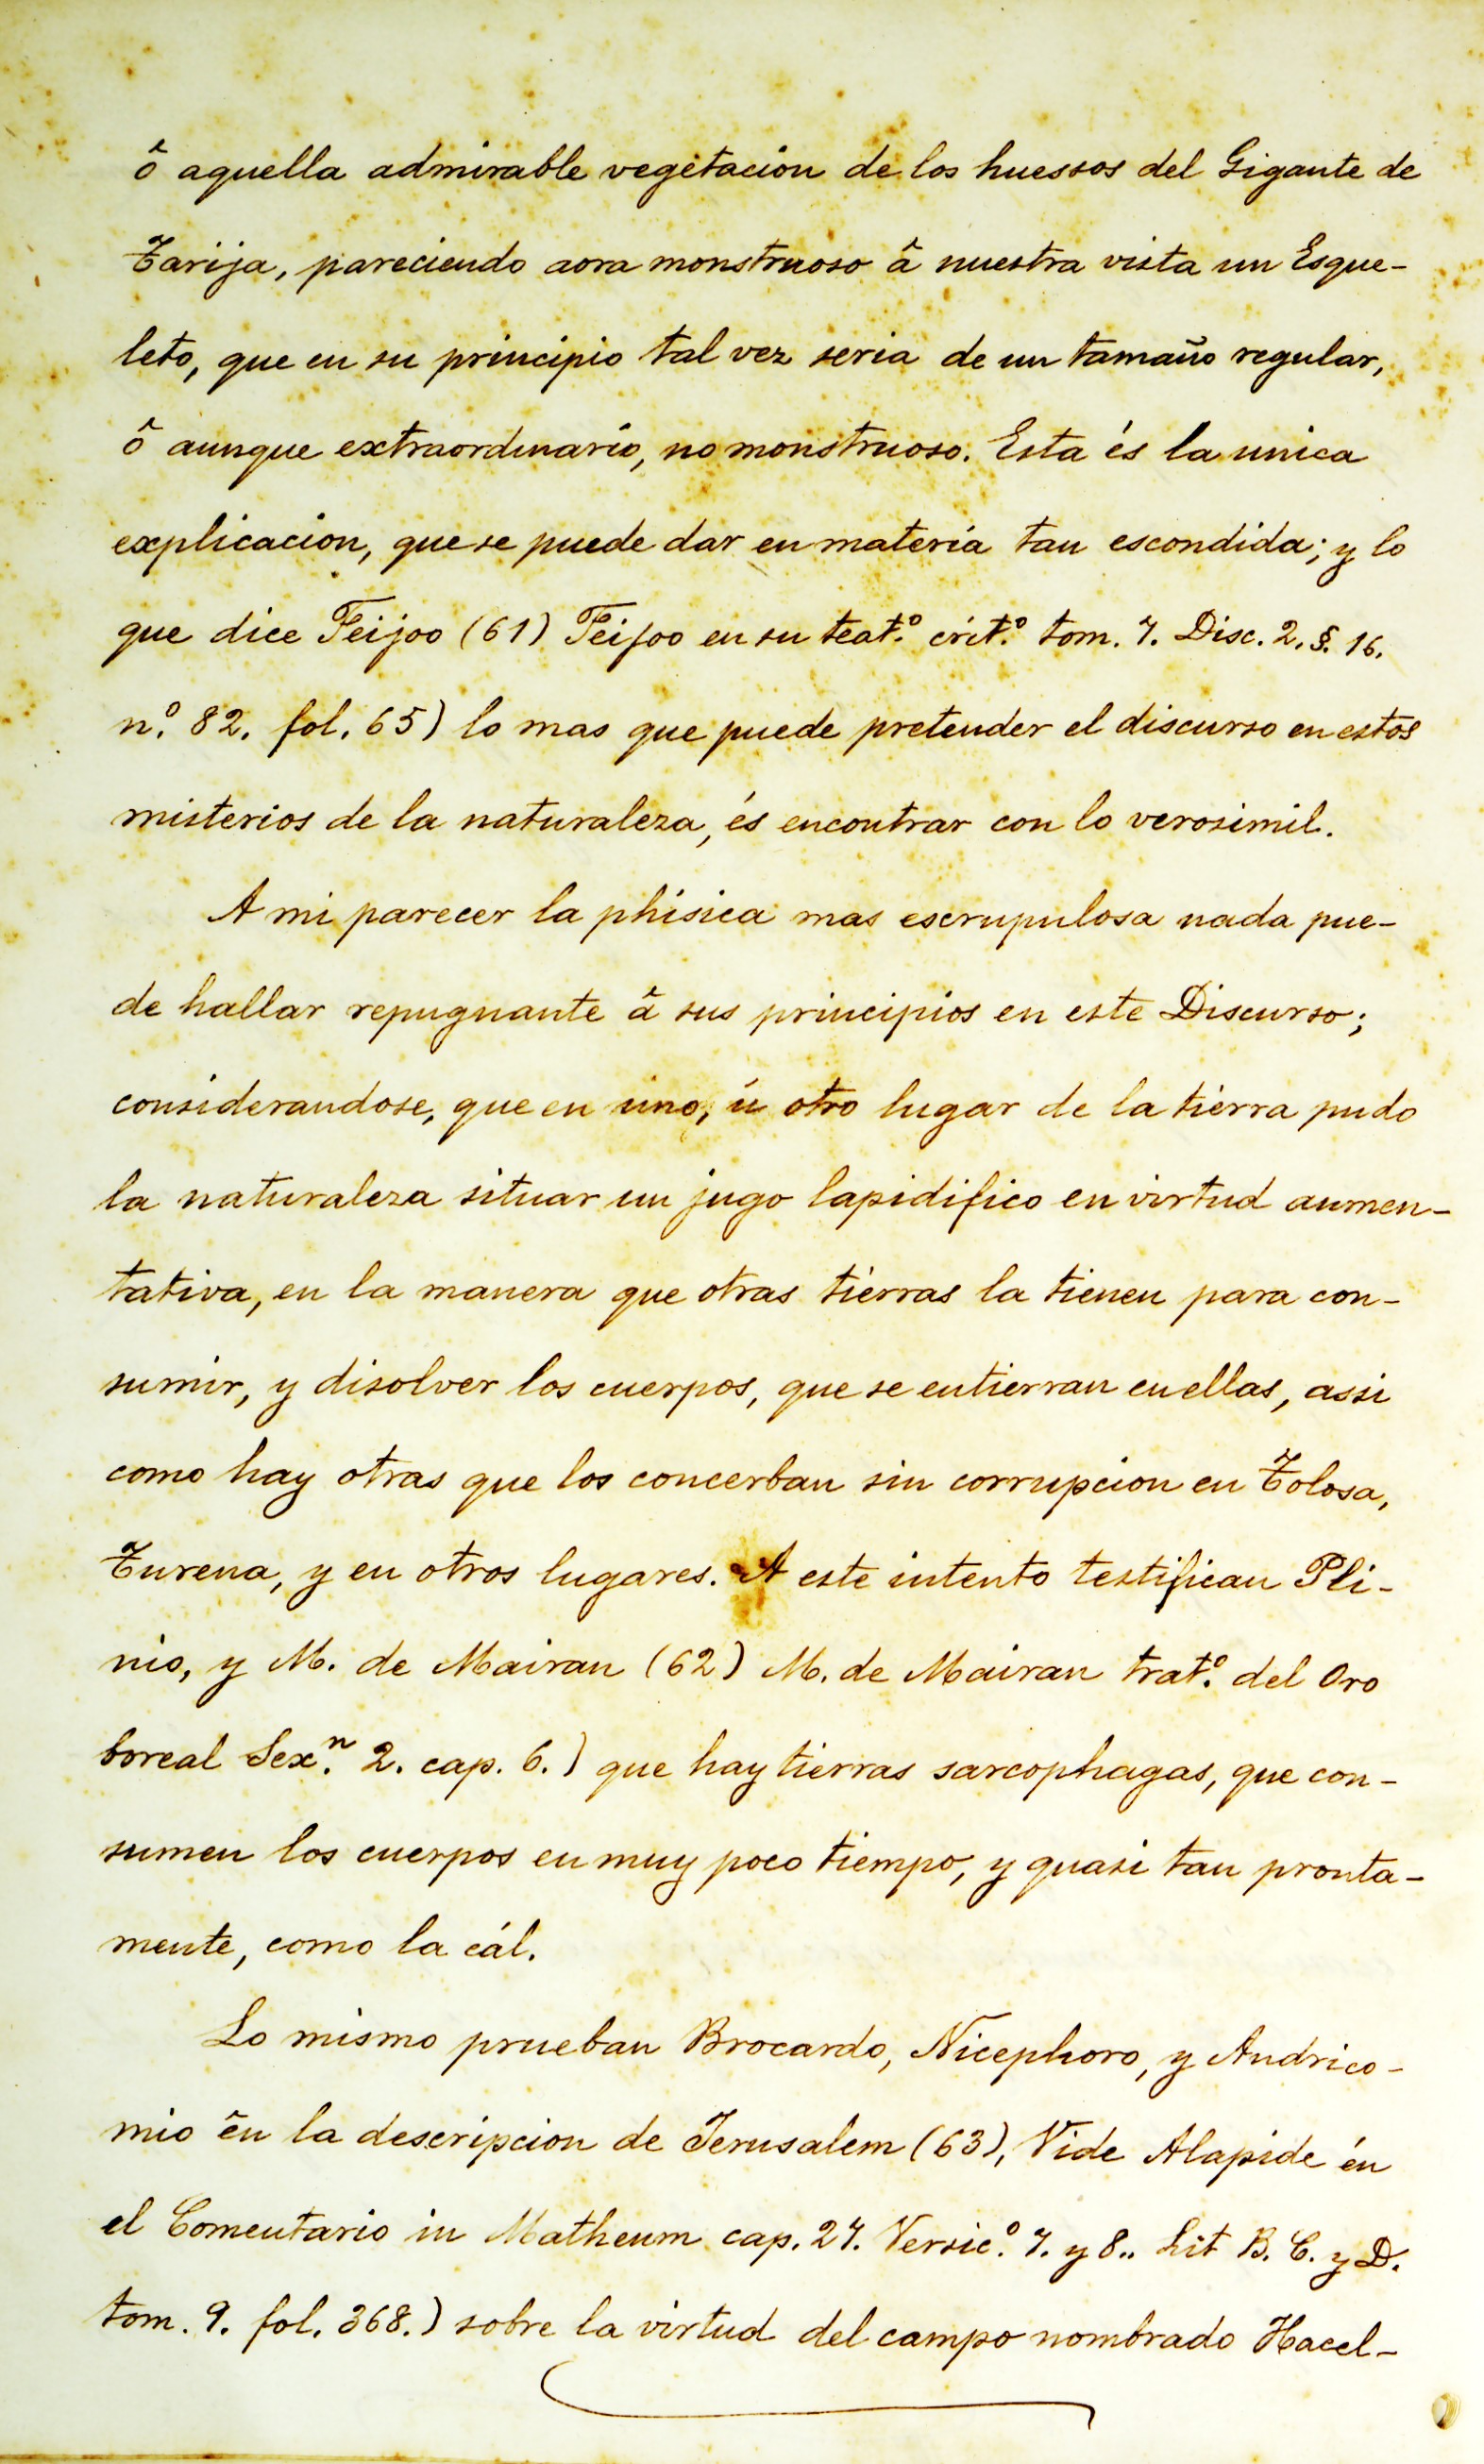 ô aquella admirable vegetacion de los huessos del Gigante de
Tarija, pareciendo aora monstruoso â nuestra vista un Esque-
leto, que en su principio tal vez seria de un tamaño regular,
ô aunque extraordinario, no monstruoso. Esta és la unica
explicacion, que se puede dar en materia tan escondida; y lo
que dice Feijoo (61) Feijoo en su teat.º crit.º tom. 7. Disc. 2. §. 16.
n.º 82. fol. 65) lo mas que puede pretender el discurso en estos
misterios de la naturaleza, és encontrar con lo verosimil.
A mi parecer la phisica mas escrupulosa nada pue-
de hallar repugnante â sus principios en este Discurso;
considerandose, que en uno, ú otro lugar de la tierra pudo
la naturaleza situar un jugo lapidifico en virtud aumen-
tativa, en la manera que otras tierras la tienen para con-
sumir, y disolver los cuerpos, que se entierran en ellas, assi
como hay otras que los concerban sin corrupcion en Tolosa,
Turena, y en otros lugares. A este intento testifican Pli-
nio, y M. de Mairan (62) M. de Mairan trat.º del Oro
boreal Sex.n 2. cap. 6.) que hay tierras sarcophagas, que con-
sumen los cuerpos en muy poco tiempo, y quasi tan pronta-
mente, como la cál.
Lo mismo prueban Brocardo, Nicephoro, y Andrico-
mio ên la descripcion de Jerusalem (63), Vide Alapide én
el Comentario in Matheum cap. 27. Versic.º 7. y 8.. Lit B. C. y D.
tom. 9. fol. 368.) sobre la virtud del campo nombrado Hacel-